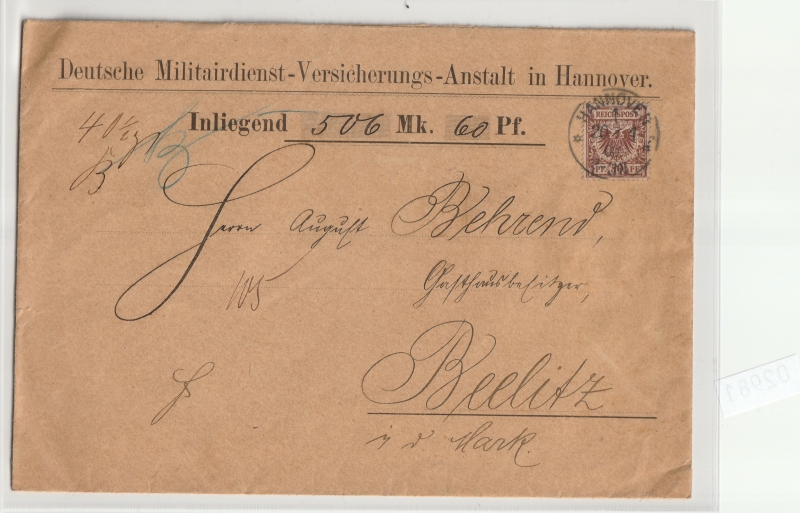 Deutsche Militairdienst-Versicherungs-Anstalt in Hannover.
Inliegend 506 Mk. 60 Pf.
HANNOVER
REICHSPOST
Herrn August Behrend,
Gasthausbesitzer,
105
Beelitz
i d Mark.
02981